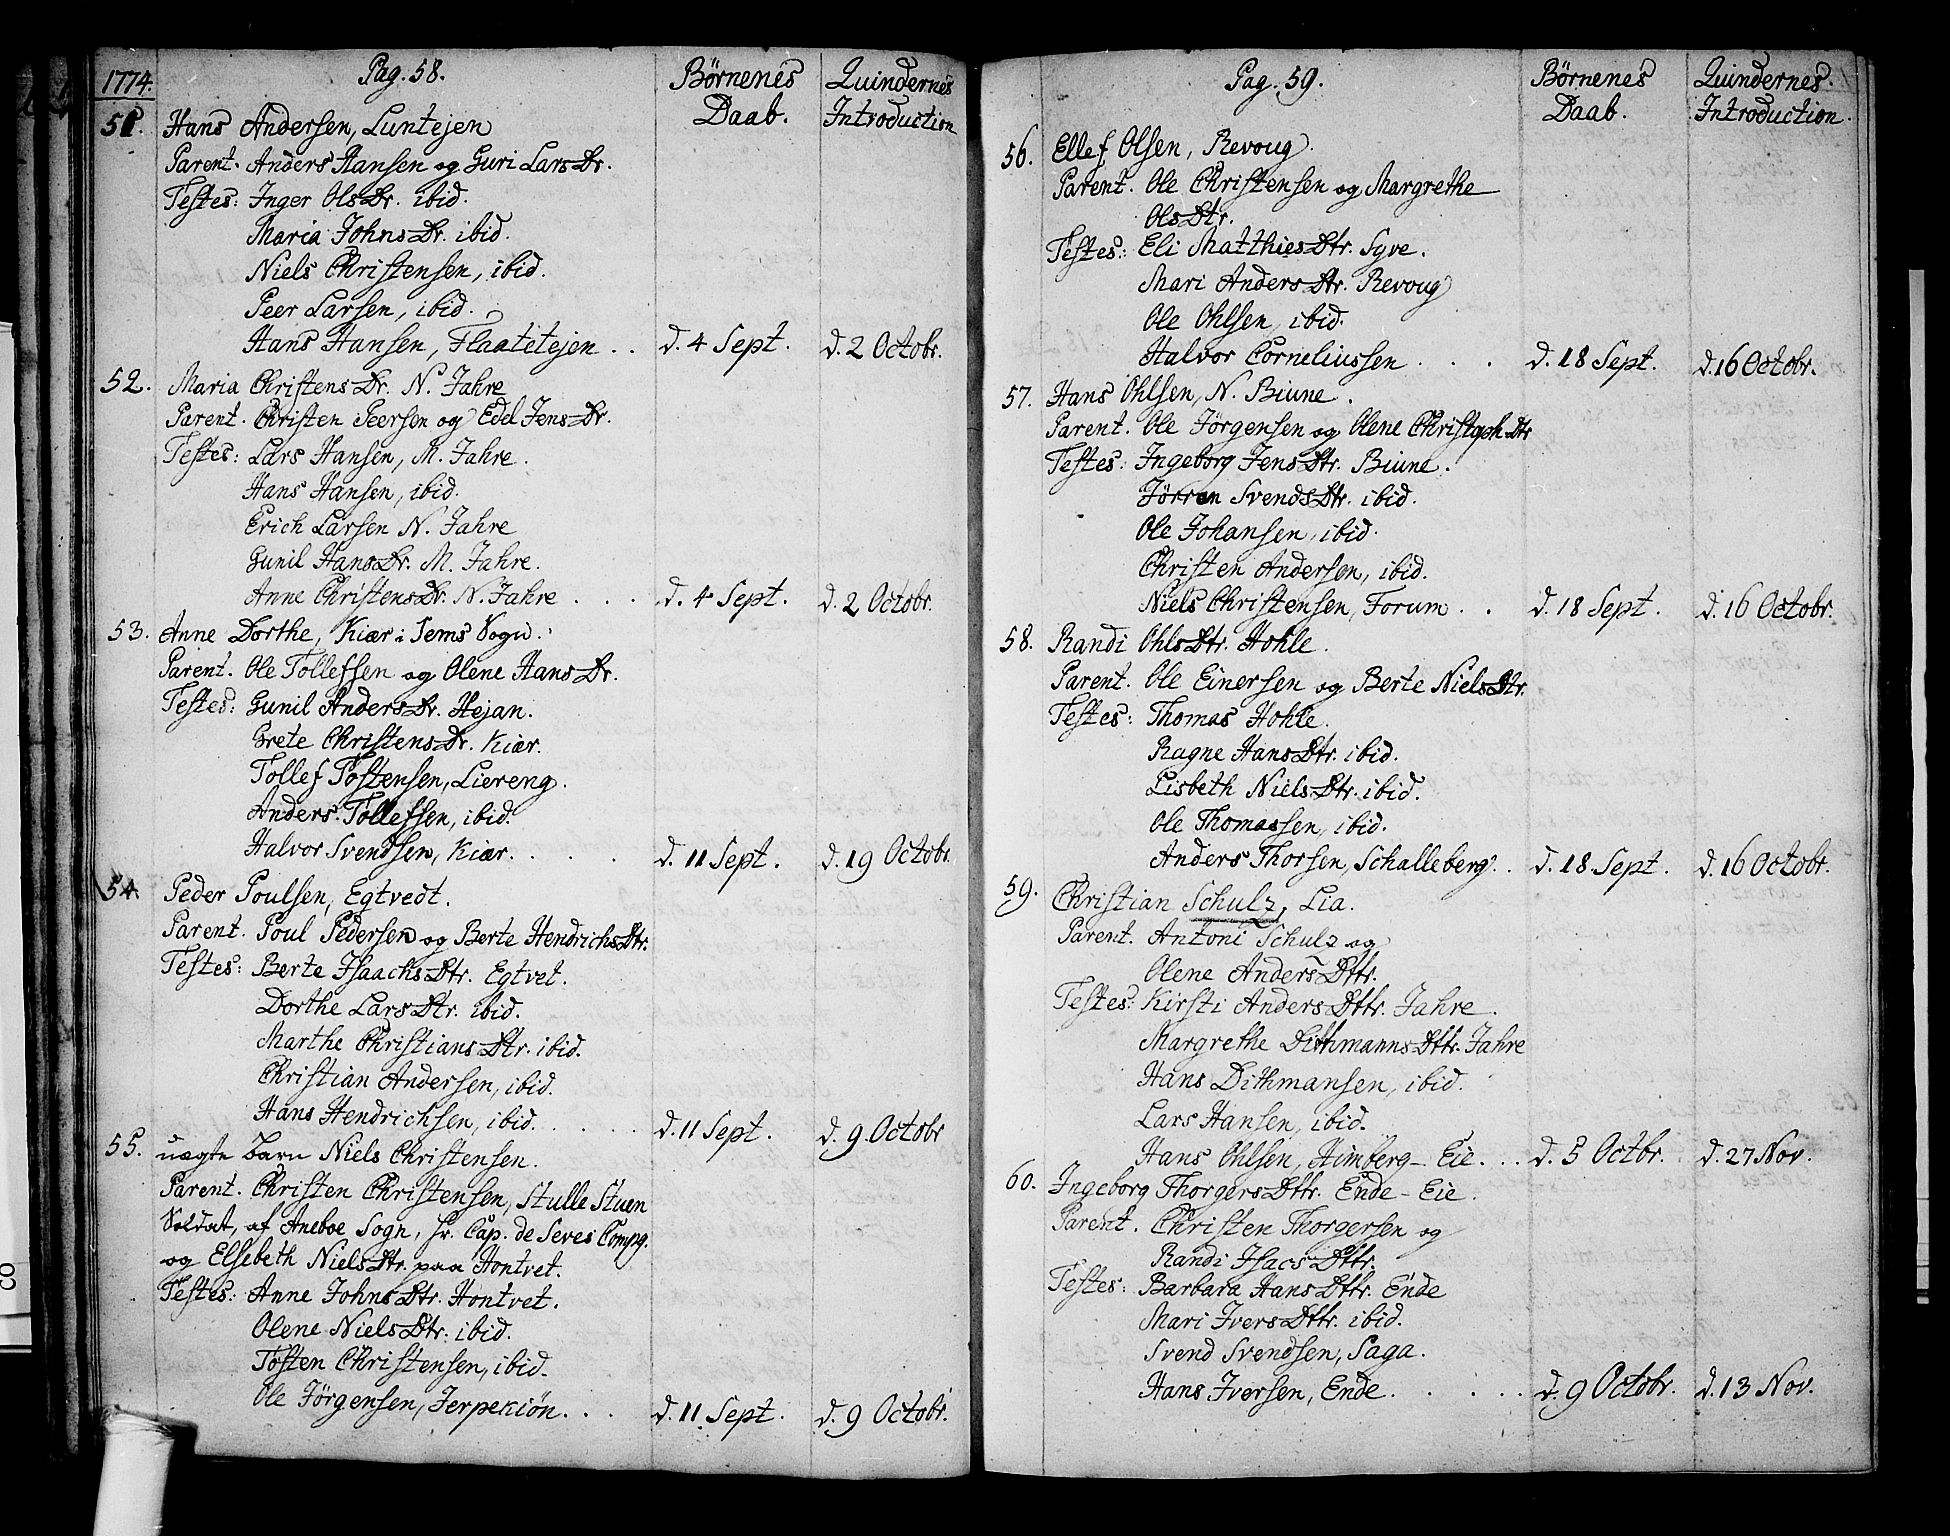 1774. Pag. 58. Børnenes Daab. Quindernes Introduction
51. Hans Andersen, Luntejen
Parent. Anders Hansen og Guri LarsDr.
Testes: Inger OlsDr. ibid.
Maria JohnsDr. ibid.
Niels Christensen, ibid.
Peer Larsen, ibid.
Hans Hansen, Flaatetejen . . d. 4 Sept. d. 2 Octobr.
52. Maria ChristensDr. N. Jahre
Parent. Christen Peersen og Edel JensDr.
Testes: Lars Hansen, M. Jahre.
Hans Hansen, ibid.
Erich Larsen N. Jahre
Gunil HansDr. M. Jahre.
Anne ChristensDr. N. Jahre . . . d. 4 Sept. d. 2 Octobr.
53. Anne Dorthe, Kiær i Sems Sogn.
Parent. Ole Tollefsen og Olene HansDr.
Testes: Gunil AndersDr. Hejan.
Grete ChristensDr. Kiær.
Tollef Tostensen, Liereng.
Anders Tollefsen, ibid.
Halvor Svendsen, Kiær. . . . d. 11 Sept. d. 19 Octobr.
54. Peder Poulsen, Egtvedt.
Parent. Poul Pedersen og Berte HendrichsDtr.
Testes: Berte IsaachsDtr. Egtvet.
Dorthe LarsDtr. ibid.
Marthe ChristiansDtr. ibid.
Christian Andersen, ibid.
Hans Hendrichsen, ibid. . . . d. 11 Sept. d. 9 Octobr
55. uægte barn Niels Christensen.
Parent. Christen Christensen, Stulle Stuen
Soldat, af Aneboe Sogn, hr. Cap. de Seves Compg.
og Elsebeth NielsDtr. paa Hontvet.
Testes: Anne JohnsDtr. Hontvet.
Olene NielsDtr. ibid.
Tosten Christensen, ibid.
Ole Jörgensen, Jerpekiön. . . d. 11 Sept. d. 9 Octobr.
Pag. 59. Børnenes Daab. Quindernes Introduction.
56. Ellef Olsen, Revoug.
Parent. Ole Christensen og Margrethe
OlsDtr.
Testes: Eli MatthiesDtr. Syve.
Mari AndersDtr. Revoug
Ole Ohlsen, ibid.
Halvor Corneliussen . . . d. 18 Sept. d. 16 Octobr.
57. Hans Ohlsen, N. Biune.
Parent. Ole Jörgensen og Olene ChristophDtr
Testes: Ingeborg JensDtr. Biune.
Jörran SvendsDtr. ibid.
Ole Johansen, ibid.
Christen Andersen, ibid.
Niels Christensen, Forum . . d. 18 Sept. d. 16 Octobr.
58. Randi OhlsDtr. Hohle.
Parent. Ole Einersen og Berte NielsDtr.
Testes: Thomas Hohle.
Ragne HansDtr. ibid.
Lisbeth NielsDtr. ibid.
Ole Thomassen, ibid.
Anders Thorsen, Schalleberg. . d. 18 Sept. d. 16 Octobr.
59. Christian Schulz, Lia.
Parent. Antoni Schulz og
Olene AndersDttr.
Testes: Kirsti AndersDttr. Jahre.
Margrethe DithmannsDttr. Jahre
Hans Dithmansen, ibid.
Lars Hansen, ibid.
Hans Ohlsen, Himberg-Eie. . . d. 5 Octbr. d. 27 Nov.
60. Ingeborg ThorgersDttr. Ende-Eie.
Parent. Christen Thorgersen og
Randi IsacsDttr.
Testes: Barbara HansDttr. Ende
Mari IversDttr. ibid.
Svend Svendsen, Saga.
Hans Iversen, Ende . . . . d. 9 Octobr. d. 13 Nov.